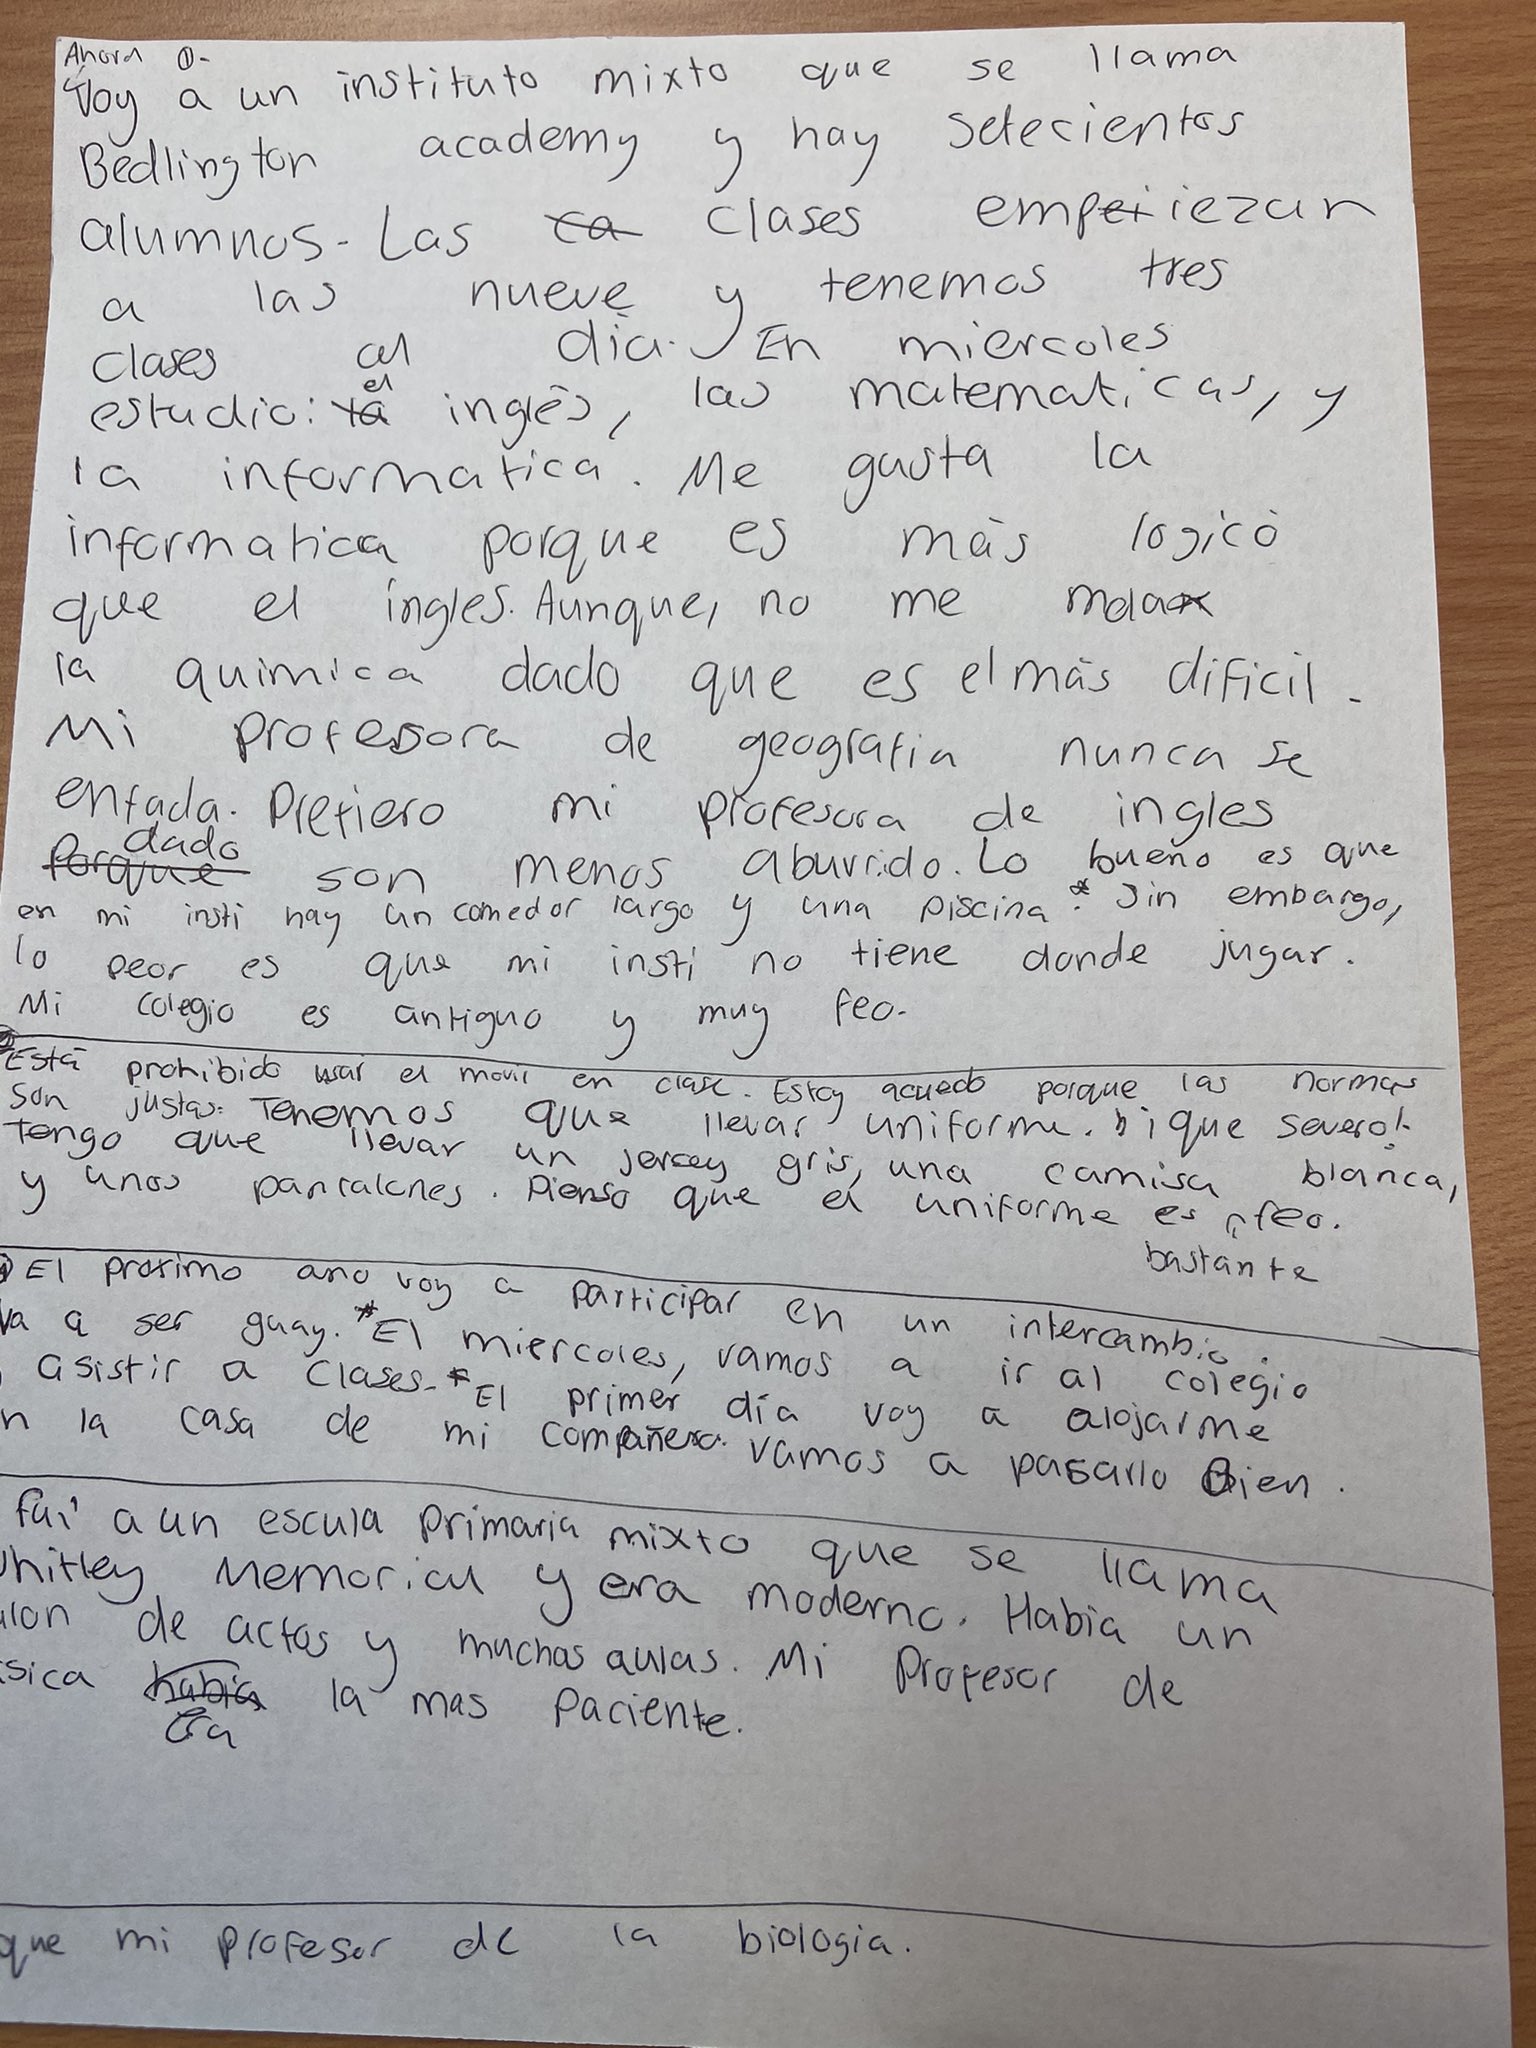 Ahora ①-
Voy a un instituto mixto que se llama
Bedlington academy y hay setecientos
alumnos. Las ca clases empeiezan
a las nueve y tenemos tres
clases al dia. En miercoles
el
estudio: la inglès, las matematicas, y
la informatica. Me gusta la
informatica porque es màs logicò
que el ingles. Aunque, no me mola
la quimica dado que es el màs dificil.
Mi profesora de geografia nunca se
enfada. Prefiero mi profesora de ingles
dado
porque son menos aburrido. Lo bueno es que
en mi insti hay un comedor largo y una piscina.* Sin embargo,
lo peor es que mi insti no tiene donde jugar.
Mi colegio es antiguo y muy feo.
Està prohibido usar el movil en clase. Estoy acuedo porque las normas
son justas. Tenemos que llevar uniforme. ¡ique severo!
Tengo que llevar un jersey gris, una camisa blanca,
y unos pantalones. Pienso que el uniforme es feo.
bastante
El proximo ano voy a participar en un intercambio.
Va a ser guay. *El miercoles, vamos a ir al colegio
asistir a clases. *El primer día voy a alojarme
n la casa de mi compañera. Vamos a pasarlo Bien.
fui a un escula primaria mixto que se llama
Whitley Memorial y era moderno. Habia un
alon de actos y muchas aulas. Mi Profesor de
isica habia la mas paciente.
era
que mi profesor de la biologia.